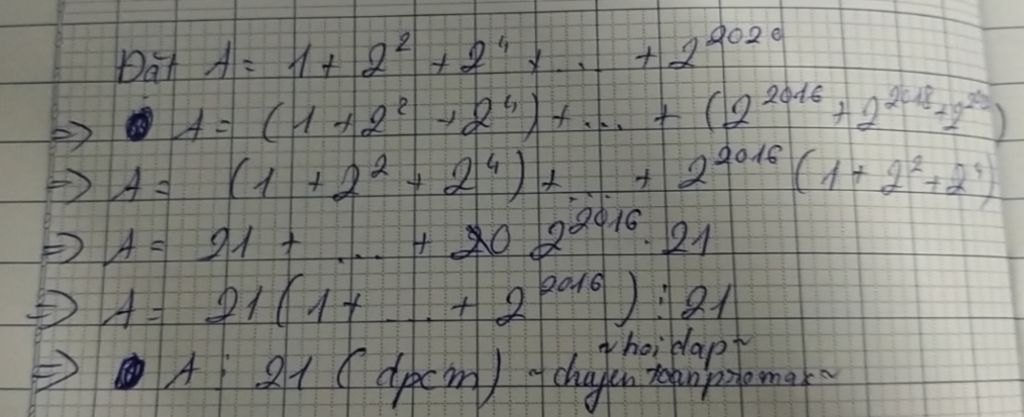 Đặt A = 1 + 2² + 2⁴ + ... + 2²⁰²⁰
=> A = (1 + 2² + 2⁴) + ... + (2²⁰¹⁶ + 2²⁰¹⁸ + 2²⁰²⁰)
=> A = (1 + 2² + 2⁴) + ... + 2²⁰¹⁶ (1 + 2² + 2⁴)
=> A = 21 + ... + 2²⁰¹⁶ . 21
=> A = 21 (1 + ... + 2²⁰¹⁶) ⋮ 21
~hoidap~
=> A ⋮ 21 (dpcm) ~chuyentoanpromax~